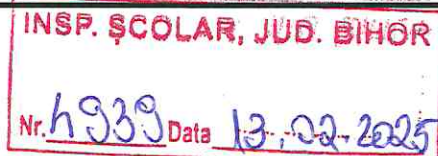 INSP. ȘCOLAR, JUD. BIHOR
Nr. 4939 Data 13.02.2025